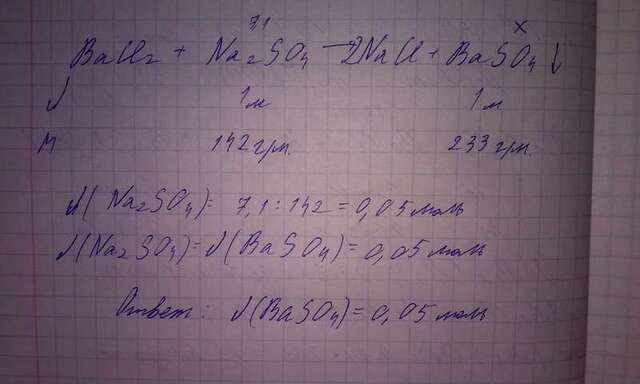 7,1 x
BaCl2 + Na2SO4 → 2NaCl + BaSO4↓
ν 1м 1м
M 142грм. 233грм.
ν(Na2SO4)= 7,1:142=0,05моль
ν(Na2SO4)=ν(BaSO4)=0,05моль
Ответ: ν(BaSO4)=0,05моль